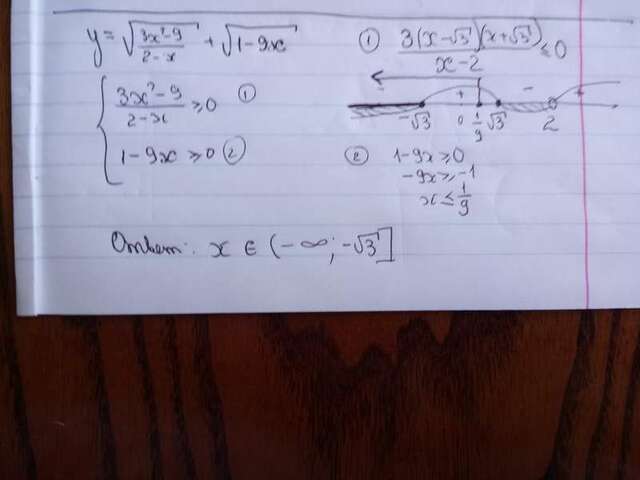 y = √((3x²-9)/(2-x)) + √(1-9x)
{ (3x²-9)/(2-x) ≥ 0 ①
{ 1-9x ≥ 0 ②
① 3(x-√3)(x+√3)/(x-2) ≤ 0
- + - +
-√3 0 1/9 √3 2
② 1-9x ≥ 0
-9x ≥ -1
x ≤ 1/9
Ответ: x ∈ (-∞; -√3]